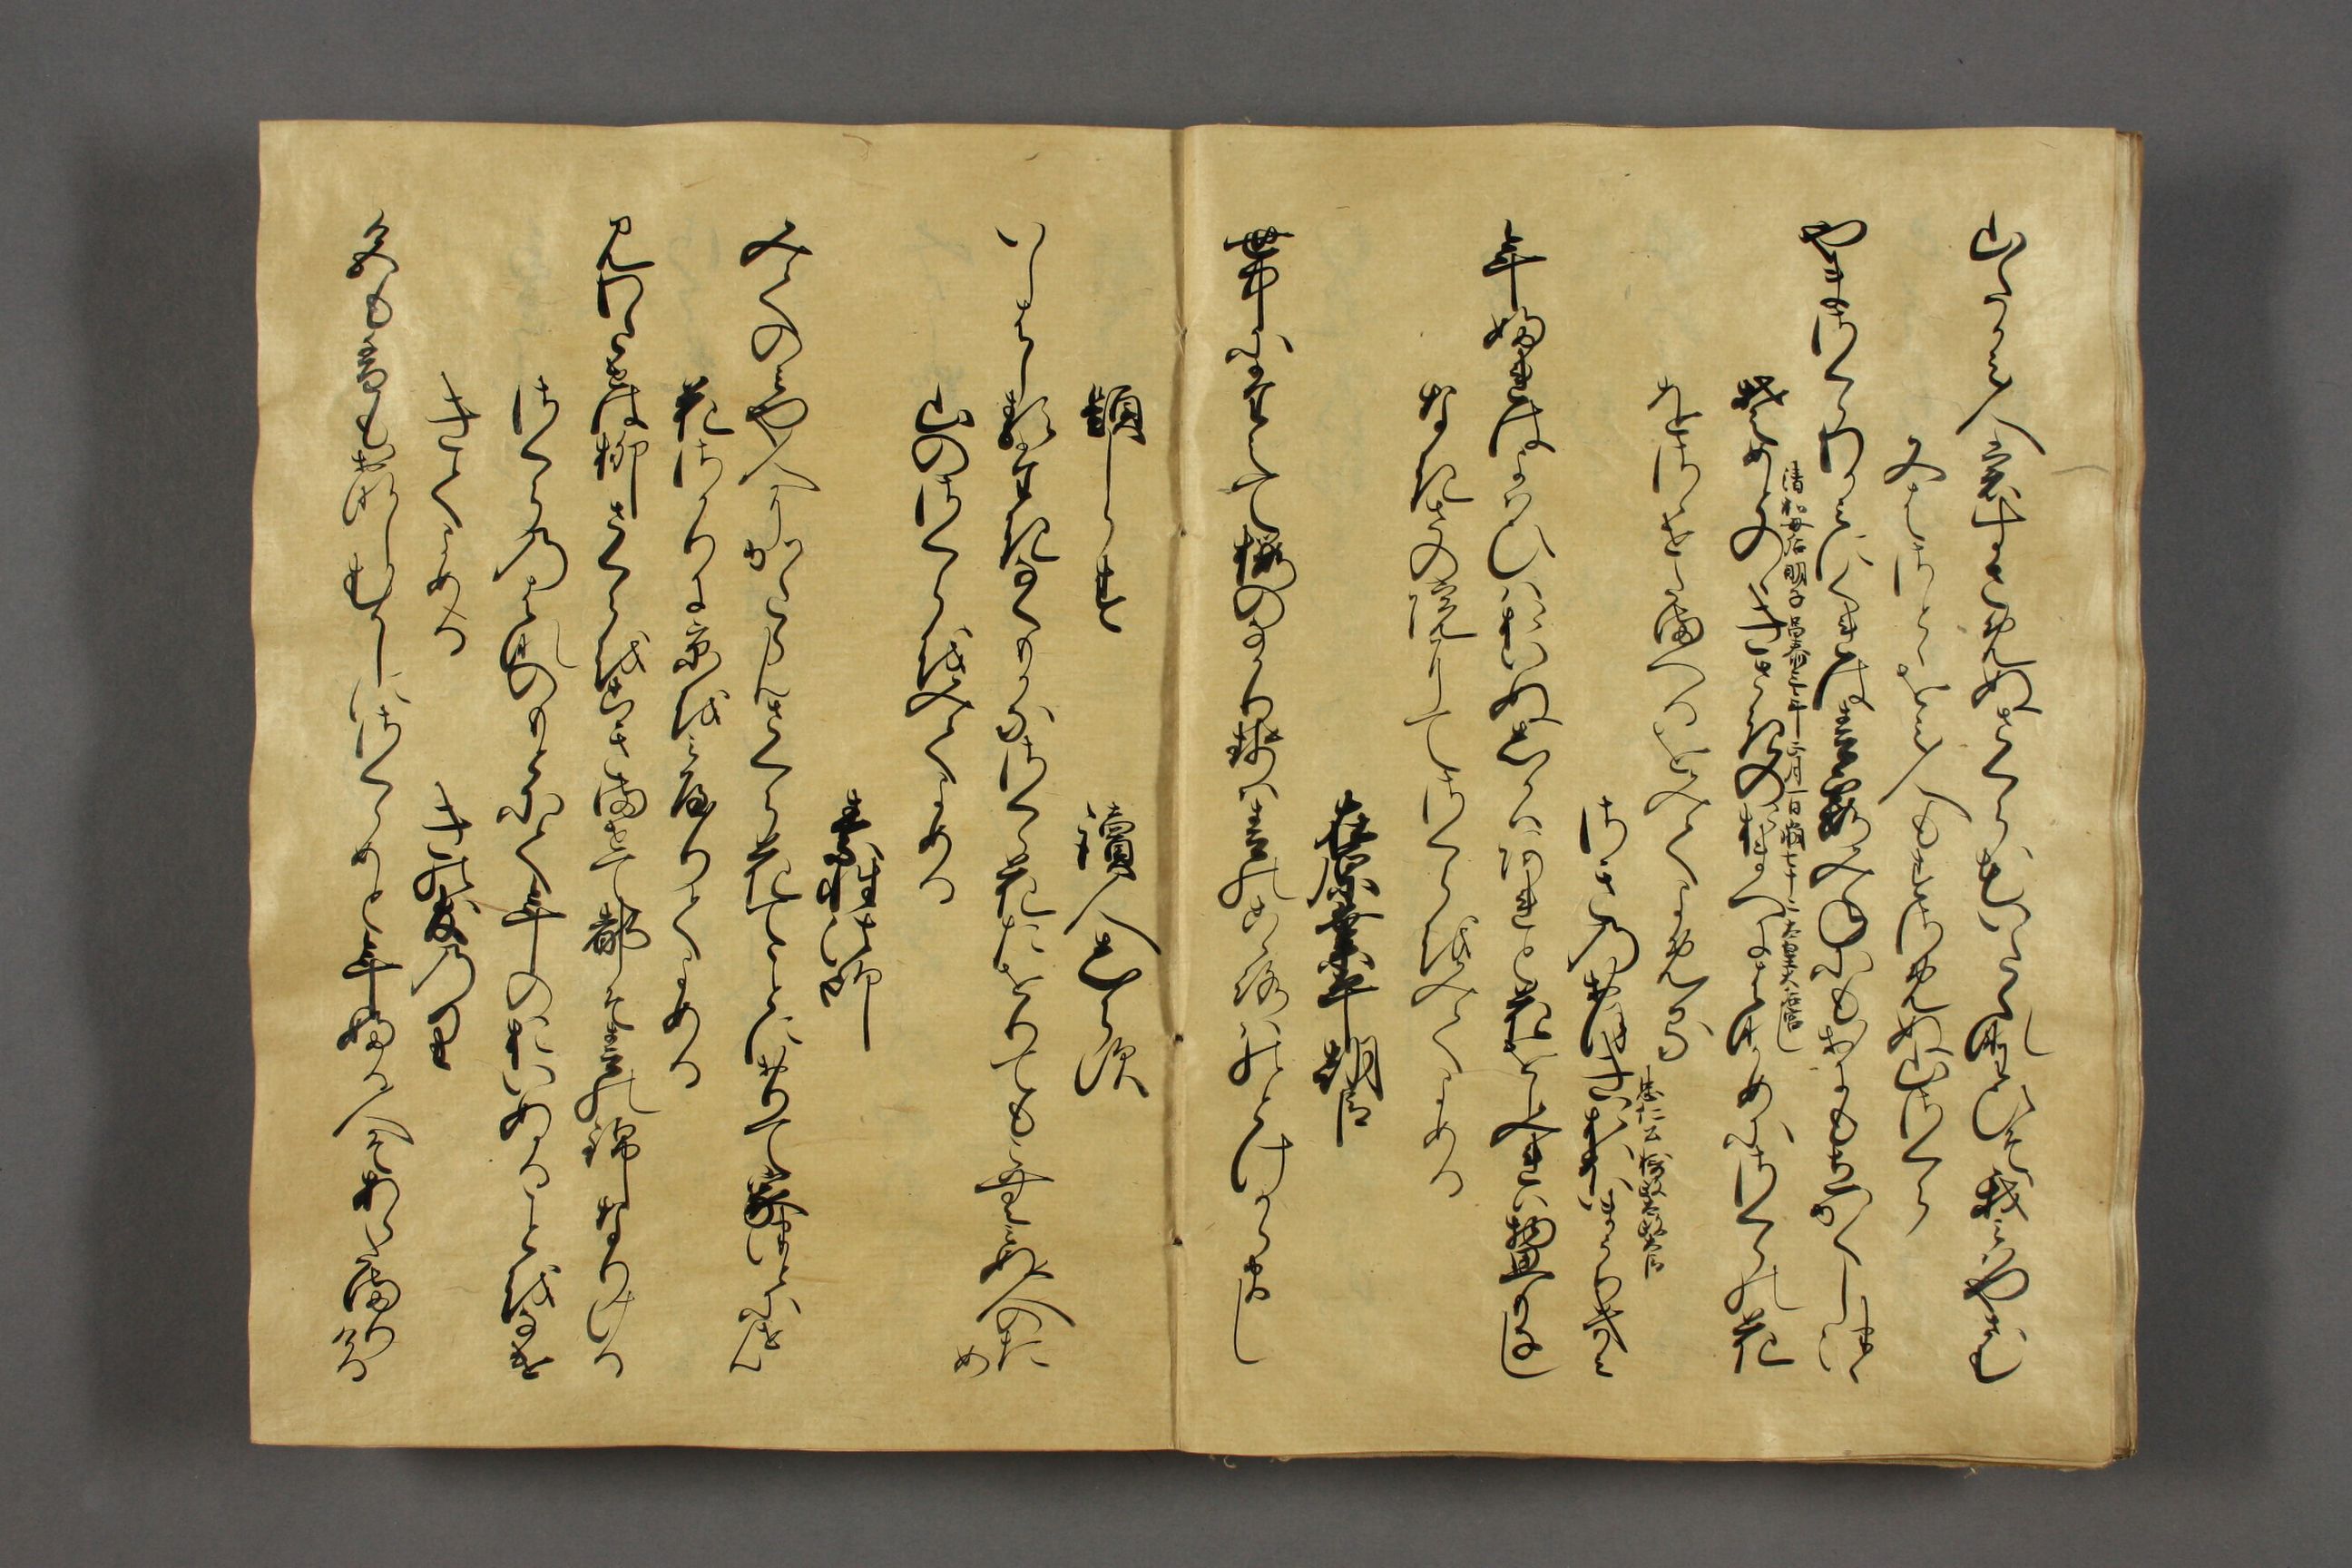 山たかみ人もすさめぬさくら花いたくなわひそ我みはやさむ
又はさとゝをみ人もすさめぬ山さくら
やまさくらわかみにくれは春霞みねにもおにもたちかくしつゝ
そめとのゝきさきのおまへに花かめにさくらの花
清和母后明子 昌泰三年正月一日崩七十二太皇大后宮
をさゝせたまへるをみてよめる
忠仁公摂政太政大臣
さきのおほきおほいまうちきみ
年ふれはよはひはおいぬしかはあれと花をしみれは物思もなし
なきさの院にてさくらをみてよめる
在原業平朝臣
世中にたえて桜のなかりせは春の心はのとけからまし
題しらす 讀人しらす
いしはしるたきなくもかなさくら花たをりてもこむみぬ人のため
山のさくらをみてよめる
素性法師
みてのみや人にかたらんさくら花てことにおりて家つとにせん
花さかりに京をみやりてよめる
見わたせは柳さくらをこきませて都そ春の錦なりける
さくらの花のもとにて年のおいぬることをなけ
きてよめる
きのとものり
色も香もおなしむかしにさくらめと年ふる人そあらたまりける